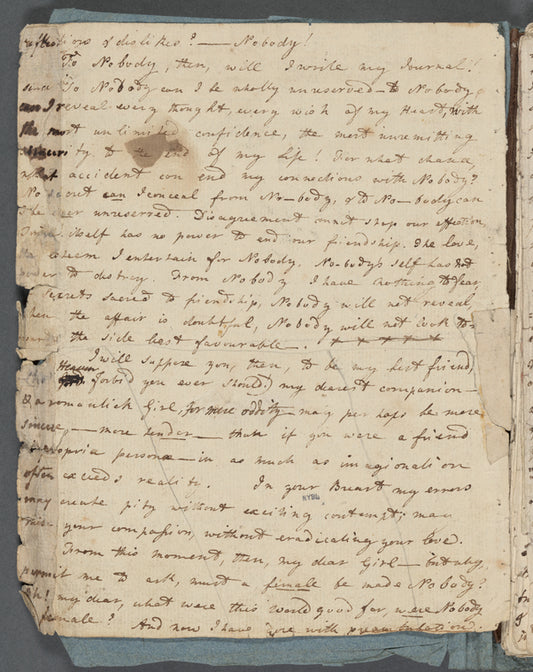 reflections of dislikes? — Nobody!
To Nobody, then, will I write my Journal!
since To Nobody can I be wholly unreserved — to Nobody
can I reveal every thought, every wish of my Heart, with
the most unlimited confidence, the most unremitting
sincerity, to the end of my Life! For what chance,
what accident can end my connections with Nobody?
No secret can I conceal from No—body, & to No—body can
I be ever unreserved. Disagreement cannot stop our affection,
Time itself has no power to end our friendship. The love,
the esteem I entertain for Nobody, No-body's self has not
power to destroy. From Nobody I have nothing to fear,
secrets sacred to friendship, Nobody will not reveal,
when the affair is doubtful, Nobody will not look to-
wards the side least favourable —. + + + + + +
I will suppose you, then, to be my best friend;
Heaven forbid you ever should! my dearest companion —
& a romantick Girl, for mere oddity may perhaps be more
sincere — more tender — than if you were a friend
in propria personæ — in as much as imagination
often exceeds reality. In your Breast my errors
may create pity without exciting contempt; may
raise your compassion, without eradicating your love.
From this moment, then, my dear Girl — but why,
permit me to ask, must a female be made Nobody?
Ah! my dear, what were this World good for, were Nobody
a female? And now I have done with preambulation.
NYPL